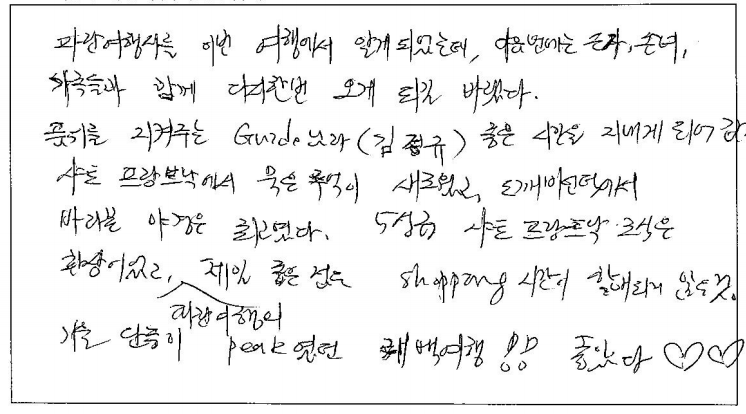 파란여행사를 이번 여행에서 알게 되었는데, 다음번에는 손자, 손녀,
가족들과 함께 다시한번 오게 되길 바랬다.
품위를 지켜주는 Guide 덕(김정규) 좋은 시간을 지내게 되어
샤토 프랑트낙에서 묵은 추억이 새로웠고, 에서
바라본 야경은 최고였다. 5성급 샤토 프랑트낙 조식은
환상이었고, 제일 좋은 점은 shopping 시간이 할애되지 않은 것.
파란여행의
가을 단풍이 peak 였던 퀘백여행!! 좋았다 ♡♡